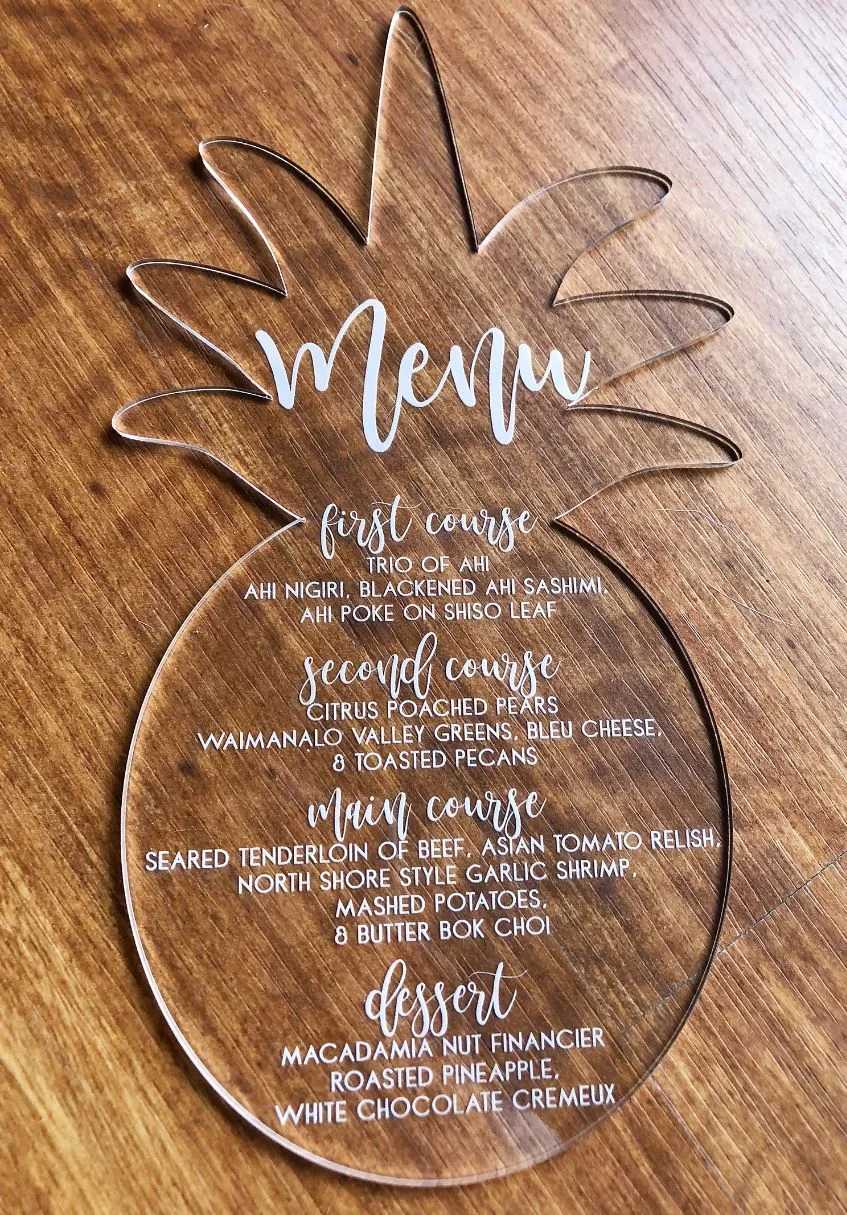 menu
first course
TRIO OF AHI
AHI NIGIRI, BLACKENED AHI SASHIMI,
AHI POKE ON SHISO LEAF
second course
CITRUS POACHED PEARS
WAIMANALO VALLEY GREENS, BLEU CHEESE,
& TOASTED PECANS
main course
SEARED TENDERLOIN OF BEEF, ASIAN TOMATO RELISH,
NORTH SHORE STYLE GARLIC SHRIMP,
MASHED POTATOES,
& BUTTER BOK CHOI
dessert
MACADAMIA NUT FINANCIER
ROASTED PINEAPPLE,
WHITE CHOCOLATE CREMEUX